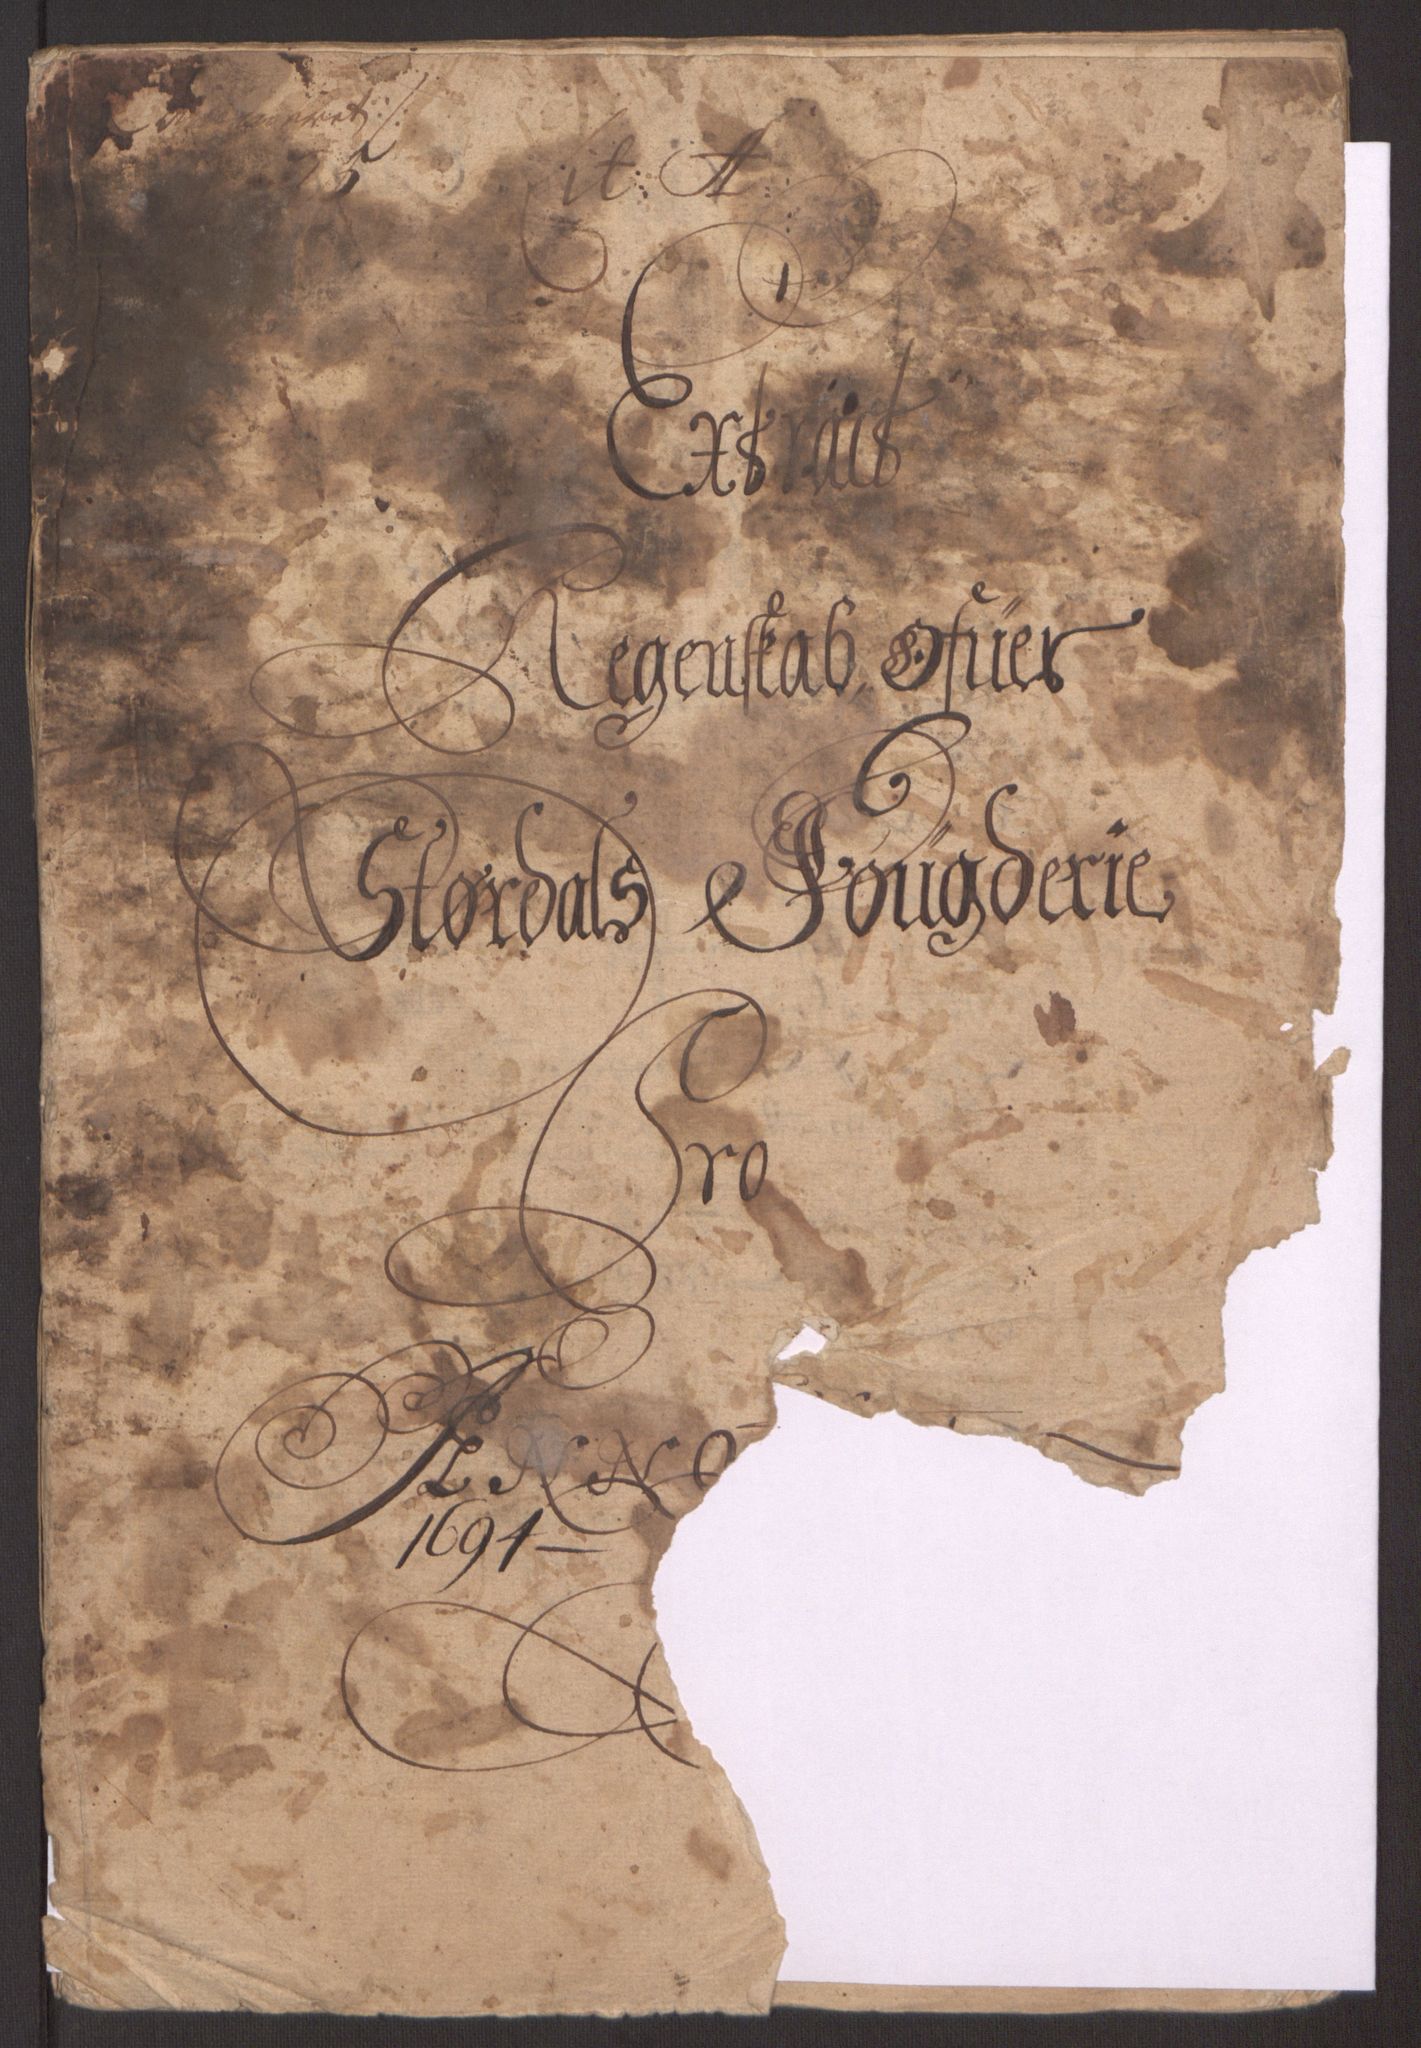 Lit: A:
1
Extract
Regenskab Ofüer
Størdals Fougderie
Pro
ANNO
1694